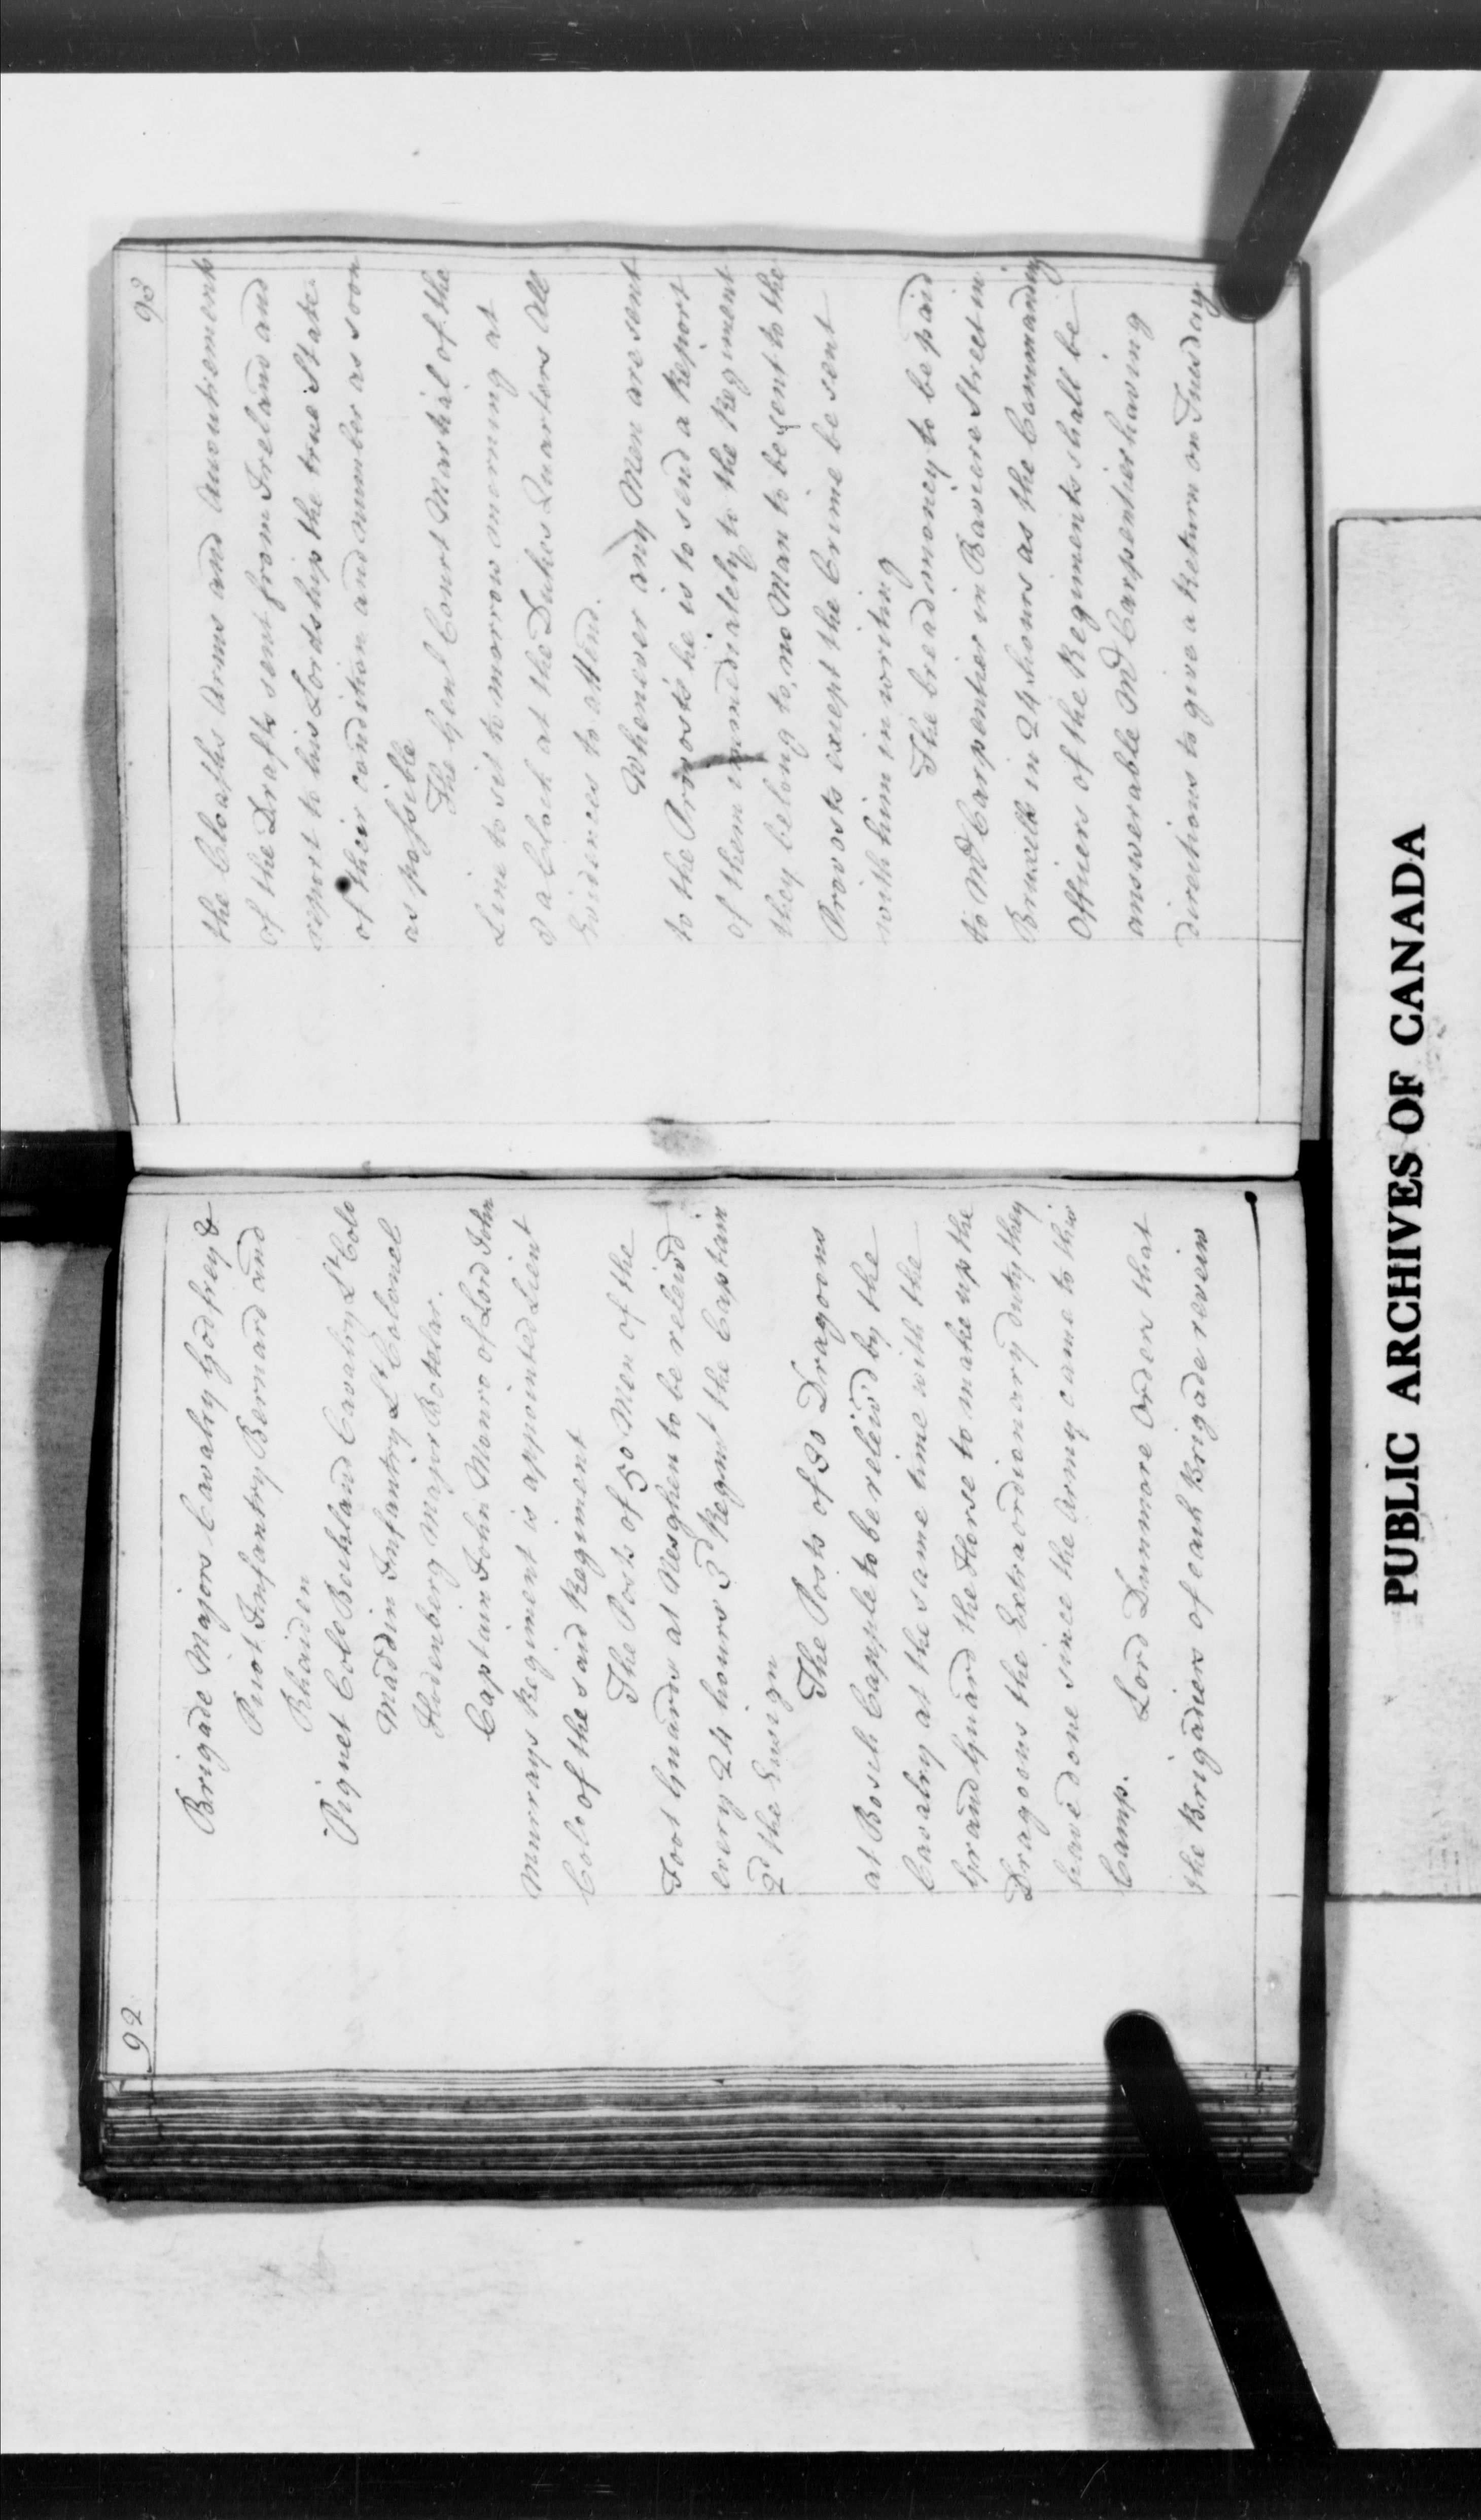 92
Brigade Majors Cavalry Godfrey &
Pirot Infantry Bernard and
Rhaiden
Piquet Colo Beikland Cavalry Lt Colo
Maddin Infantry Lt Colonel
Hodenberg Major Botelar.
Captain John Monro of Lord John
Murrays Regiment is appointed Lieut
Colo of the said Regiment
The Posts of 50 Men of the
Foot Guards at Nesghen to be releiv'd
every 24 hours 3d Regmt the Captain
2d the Ensign
The Posts of 30 Dragoons
at Bosch Capple to be releiv'd by the
Cavalry at the same time with the
Grand Guard the Horse to make up the
Dragoons the Extraordienary duty they
have done since the Army came to this
Camp. Lord Dunmore orders that
the Brigadiers of each Brigade reveiw
93
the Cloaths Arms and Accoutrements
of the Drafts sent from Ireland and
report to his Lordship the true State
of their condition and number as soon
as possible
The Genl Court Martial of the
Line to sit to morrow morning at
8 a Clock at the Dukes Quarters All
Evidences to attend.
Whenever any Men are sent
to the Provosts he is to send a Report
of them immediately to the Regiment
they belong to, no Man to be sent to the
Provosts except the Crime be sent
with him in writing
The bread money to be paid
to Md Carpentier in Baviere Street in
Bruxells in 24 hours as the Commanding
Officers of the Regiments shall be
answerable Md Carpentier having
directions to give a Return on Tuesday
PUBLIC ARCHIVES OF CANADA